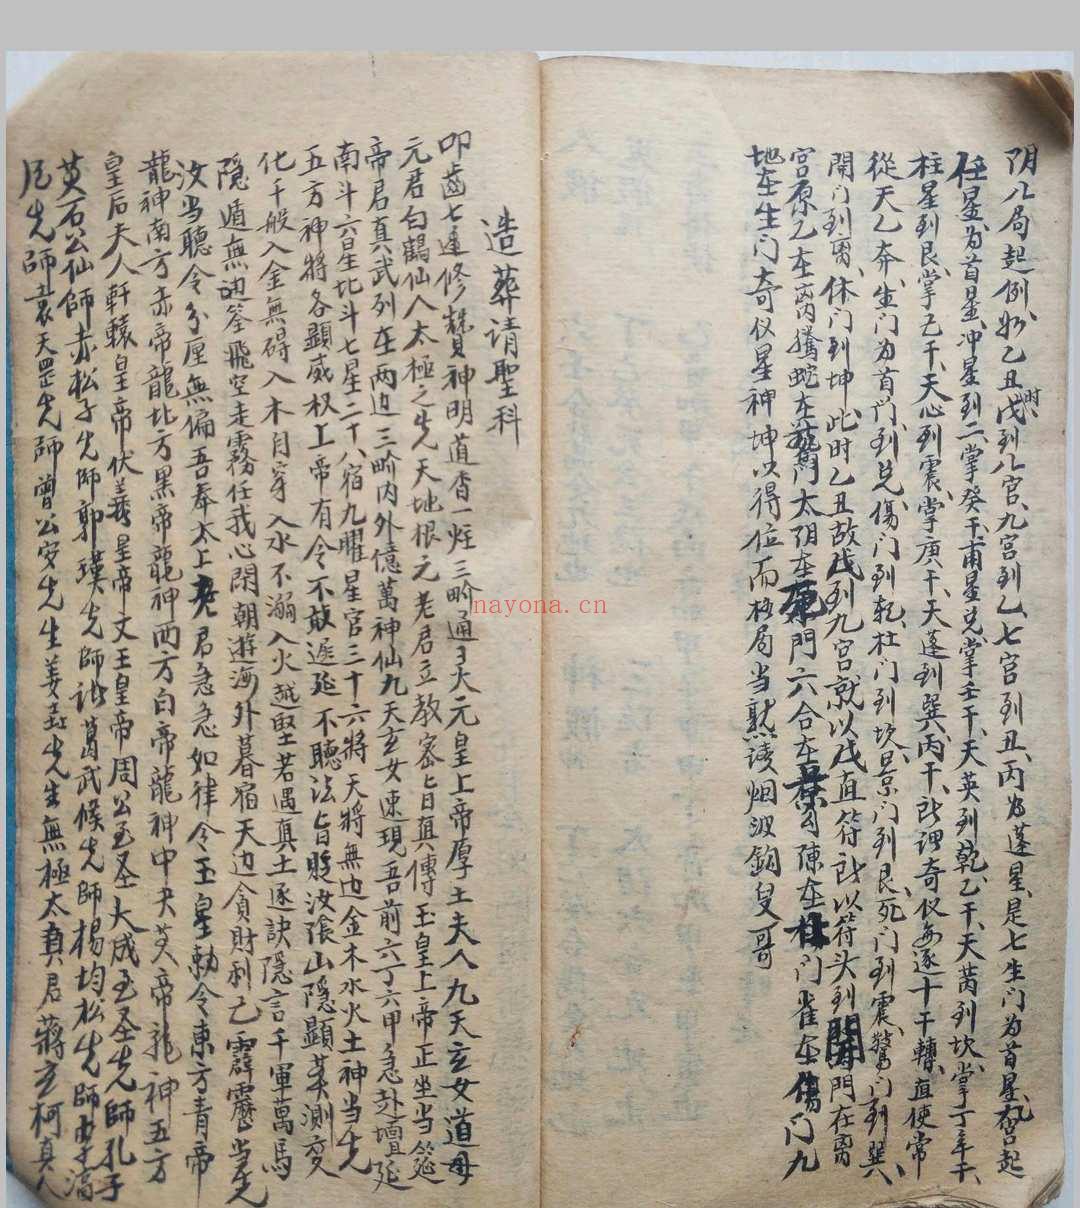 阴八局起例、如乙丑时、戊到八宫、九宫到乙、七宫到丑、丙为蓬星、是七生门为首星、九宫起
任星、为首星、冲星到二、掌癸干、甫星兑、掌壬干、天英列乾、乙干、天芮列坎、掌丁年干、
柱星到艮、掌己干、天心到震、掌庚干、天蓬到巽、丙干、此谓奇仪每逐十干轉、直使常
從天乙奔、生门为首门、到兑、傷门到乾、杜门到坎、景门列艮、死门到震、驚门到巽、
開门到离、休门到坤、此时乙丑故戊列九宫就以戊直符、即以符头到開門在离
宫原乙在离騰蛇在驚門太阴在死門六合在景勾陳在杜门雀在傷门九
地在生门奇仪星神坤以得位而格局当熟读烟波釣叟哥
造葬请聖科
叩齒七通修讚神明道香一炷三畍通了大元皇上帝厚土夫人九天玄女道母
元君白鶴仙人太極之先天地根元老君立教密旨真傳玉皇上帝正坐当筵
帝君真武列在两边三畍内外億萬神仙九天玄女速現吾前六丁六甲急赴壇延
南斗六星北斗七星二十八宿九曜星官三十六將天將無边金木水火土神当先
五方神將各顯威权上帝有令不敢遲延不聽法旨貶汝張山隱顯莫測变
化千般入金無碍入木自穿入水不溺入火越堅若遇真土逐訣隱言千軍萬馬
隐遁無边筌飛空走霧任我心閑朝遊海外暮宿天边貪財利己霹靂当先
汝当聽令分厘無偏吾奉太上老君急急如律令玉皇勅令東方青帝
龍神南方赤帝龍神北方黑帝龍神西方白帝龍神中央黄帝龍神五方
皇后夫人軒轅皇帝伏羲皇帝文王皇帝周公至圣大成至圣先師孔子
黄石公仙師赤松子先師郭璞先師諸葛武候先師楊均松先師李淳
风先師袁天罡先師曾公安先生姜太先生無極太真君蔣玄柯真人
nayona.cn